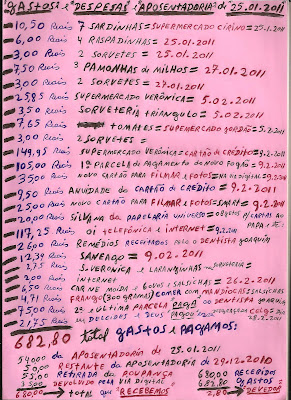 gastos e "DESPESAS" "APOSENTADORIA" di 25.01.2011
10,50 Reais 7 SARDINHAS = SUPERMERCADO CIRINO = 25.1.2011
6,00 Reais 4 RASPADINHAS = 25.01.2011
3,00 Reais 2 SORVETES = 25.01.2011
7,50 Reais 3 PAMONHAS di MILHOS = 27.01.2011
3,00 Reais 2 SORVETES = 27.01.2011
25,85 Reais SUPERMERCADO VERÔNICA = 5.02.2011
3,50 Reais SORVETERIA TRIANGULO = 5.02.2011
7,65 Reais TOMATES = SUPERMERCADO = 5.2.2011
3,00 Reais 2 SORVETES =
149,95 Reais SUPERMERCADO VERÔNICA = CARTÃO di CRÉDITO = 9.2.2011
105,00 Reais 1ª PARCELA di PAGAMENTO do NOVO FOGÃO = 9.2.2011
35,00 Reais NOVO CARTÃO PARA FILMAR e FOTOS = DIGITAL
9,50 Reais ANUIDADE do CARTÃO di CRÉDITO = 9.2.2011
25,00 Reais NOVO CARTÃO PARA FILMAR e FOTOS 9.2.2011
20,00 Reais SILVANA da PAPELARIA UNIVERSO = OBJETOS p/CARTAS ao PAPA
117,25 Reais OI TELEFÔNICA e INTERNET = 9.2.2011
26,00 Reais REMÉDIOS RECEITADOS pelo DENTISTA JOAQUIM
12,39 Reais SANEAGO = 9.02.2011
2,75 Reais S. VERONICA e LARANJINHAS
2,00 Reais INTERNET
6,50 Reais CARNE MOIDA e 6 OVOS e SALSICHAS = 26.2.2011
4,71 Reais FRANGO (300 GRAMAS) COMER com MANDIOCAS/SALSICHAS
75,00 Reais 2ª e ÚLTIMA PARCELA PAGA ao DENTISTA JOAQUIM
21,75 Reais
682,80 total gastos e PAGAMOS:
540,00 da APOSENTADORIA di 25.01.2011
RESTANTE da APOSENTADORIA di 29.12.2010
RETIRADA da POUPANÇA 680,00 RECEBIDOS
DEVOLUIDO PELA VIA DIGITAL 682,80 gastos
680,00 → total que "RECEBEMOS" 2,80 → DEVEDOR